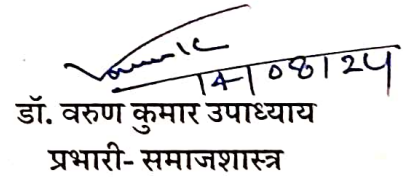 14/08/24
डॉ. वरुण कुमार उपाध्याय
प्रभारी- समाजशास्त्र